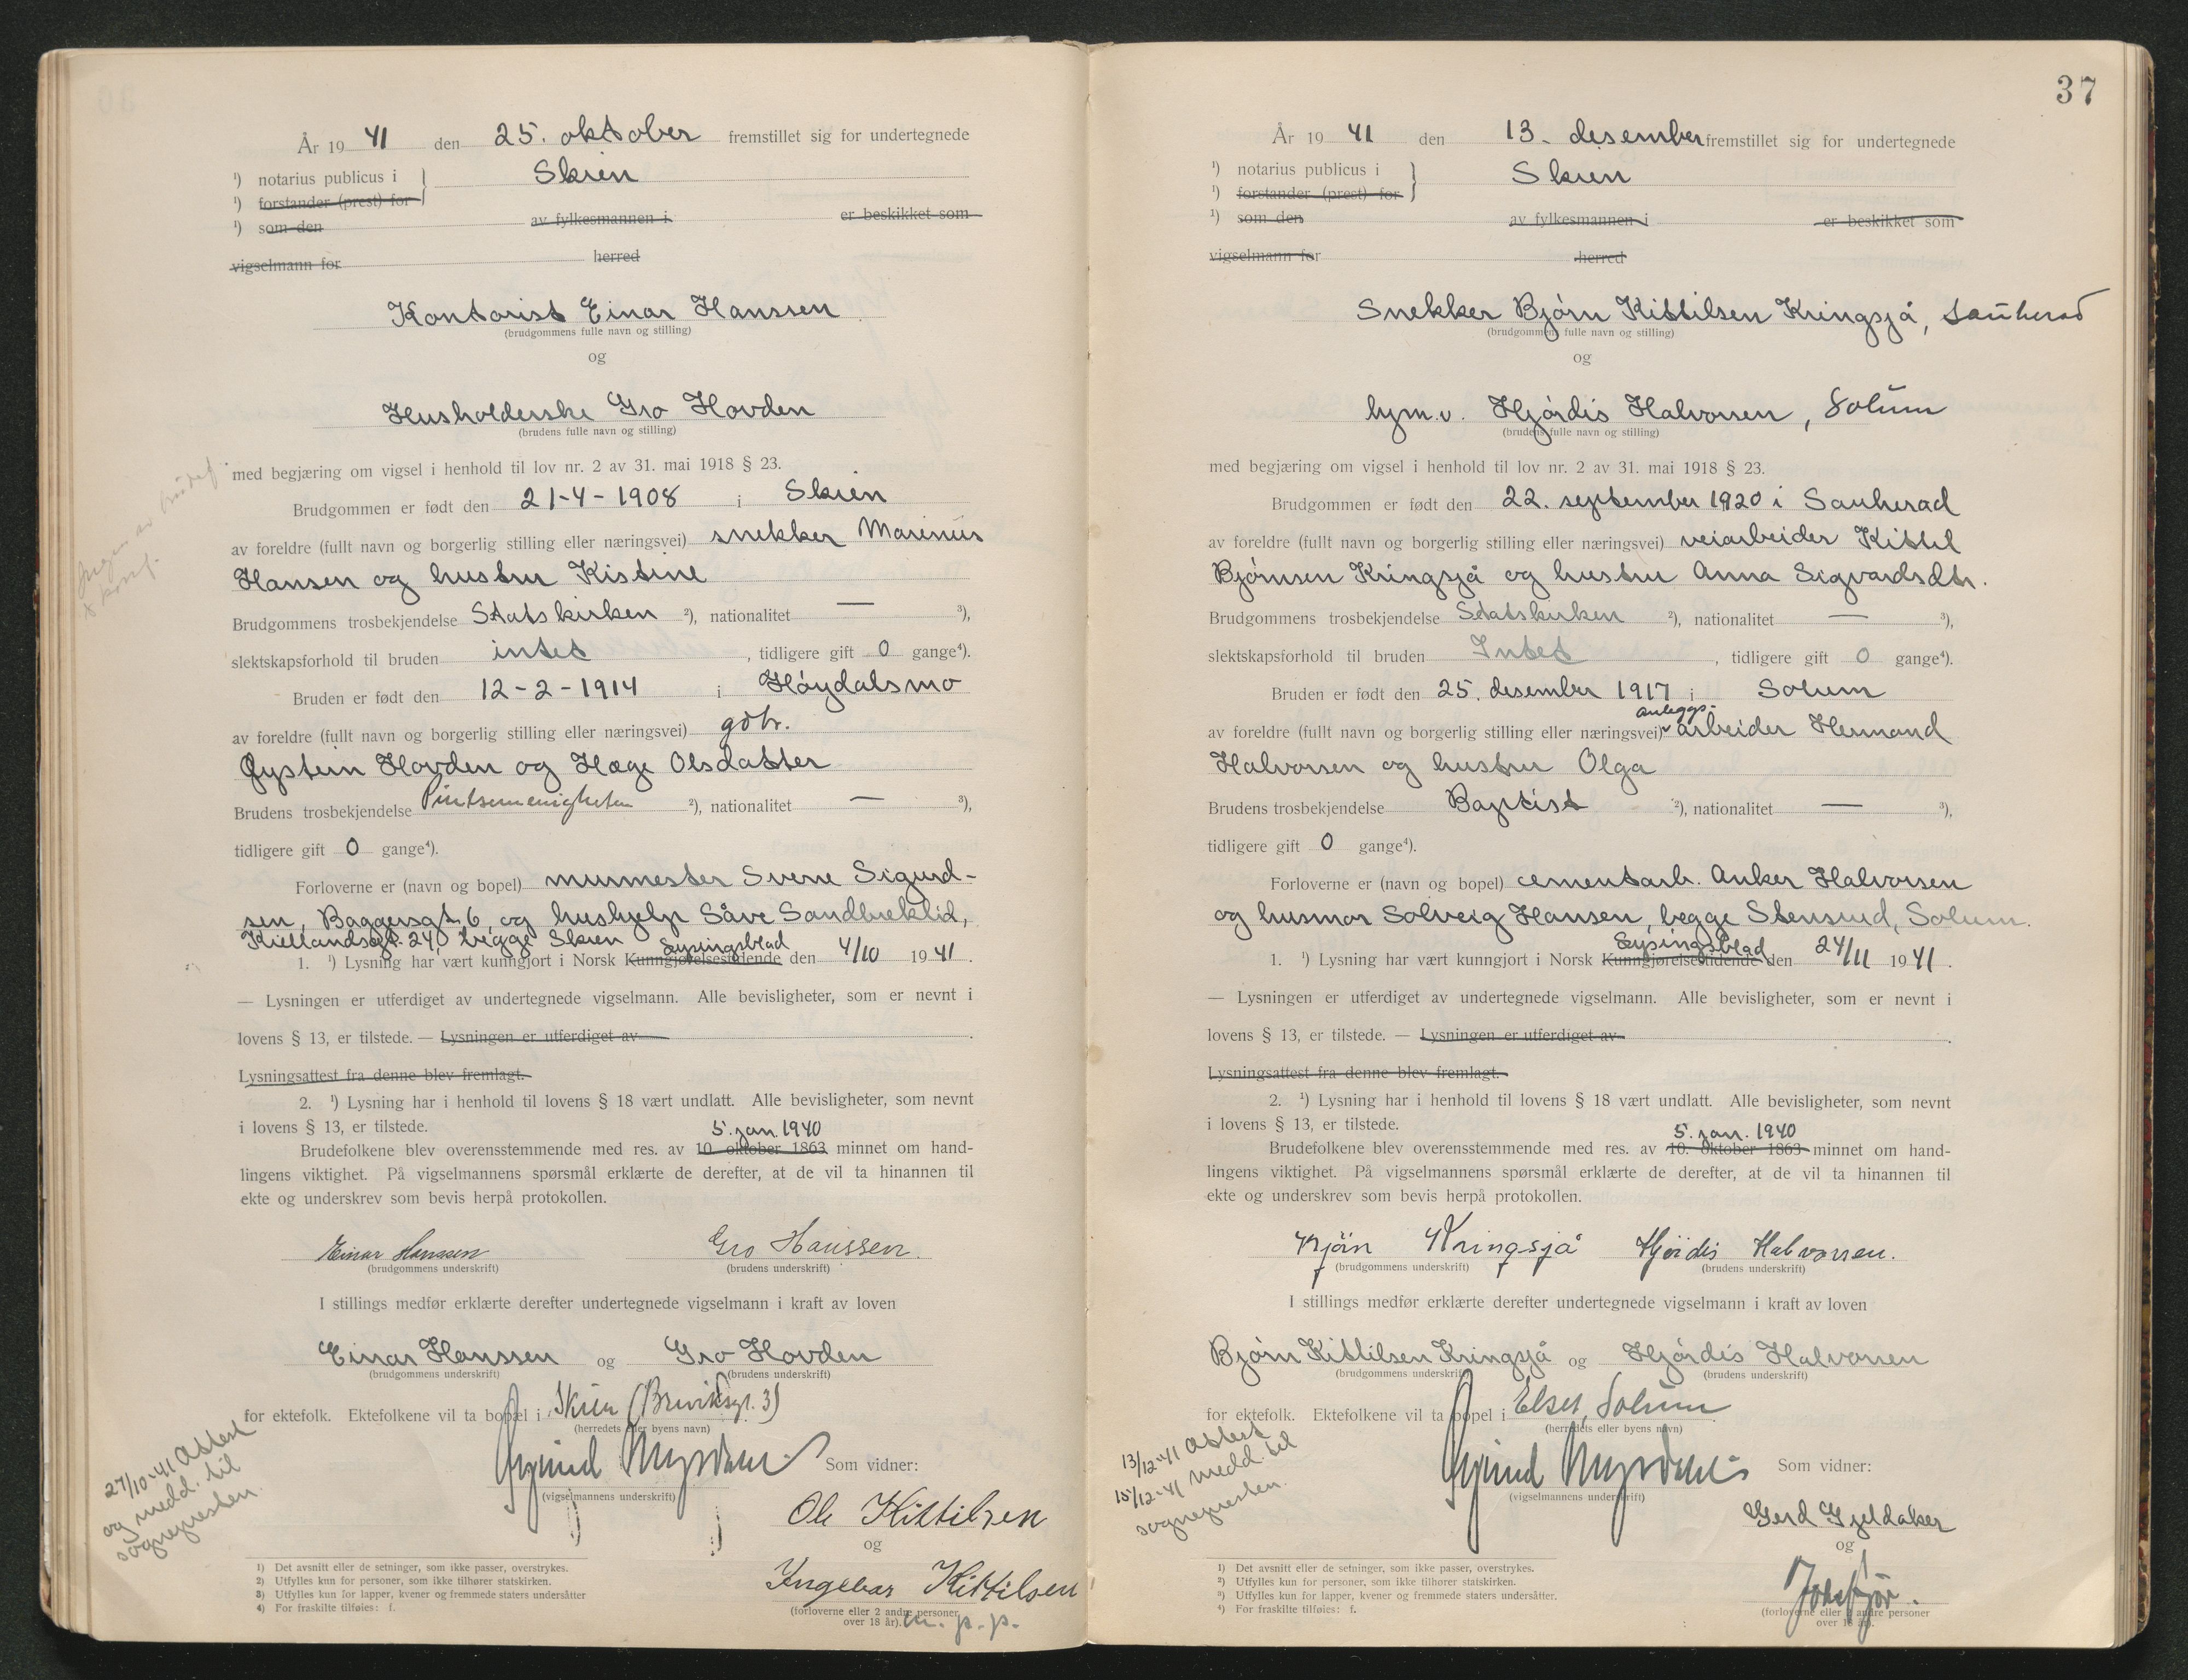 År 19 41 den 25. oktober fremstillet sig for undertegnede
¹) notarius publicus i } Skien
¹) forstander (prest) for
¹) som den av fylkesmannen i er beskikket som
vigselmann for herred
Kontorist Einar Hanssen
(brudgommens fulle navn og stilling)
og
Husholderske Gro Hovden
(brudens fulle navn og stilling)
med begjæring om vigsel i henhold til lov nr. 2 av 31. mai 1918 § 23.
Ingen av
Brudgommen er født den 21-4-1908 i Skien
av foreldre (fullt navn og borgerlig stilling eller næringsvei) snekker Marinius
Hansen og hustru Kistine
Brudgommens trosbekjendelse Statskirken ²), nationalitet — ³),
slektskapsforhold til bruden intet , tidligere gift 0 gange⁴).
Bruden er født den 12-2-1914 i Høydalsmo
av foreldre (fullt navn og borgerlig stilling eller næringsvei) gdbr.
Øystein Hovden og Hæge Olsdatter
Brudens trosbekjendelse Pintsemenigheten ²), nationalitet — ³),
tidligere gift 0 gange⁴).
Forloverne er (navn og bopel) murmester Sverre Sigurd-
sen, Baggersgt. 6, og hushjelp Såve Sandbreklid,
Kiellandsgt. 24, begge Skien Lysingsblad
1. ¹) Lysning har vært kunngjort i Norsk Kunngjørelsestidende den 4/10 19 41.
— Lysningen er utferdiget av undertegnede vigselmann. Alle bevisligheter, som er nevnt i
lovens § 13, er tilstede. — Lysningen er utferdiget av
Lysningsattest fra denne blev fremlagt.
2. ¹) Lysning har i henhold til lovens § 18 vært undlatt. Alle bevisligheter, som nevnt
i lovens § 13, er tilstede.
5. jan. 1940
Brudefolkene blev overensstemmende med res. av 10. oktober 1863 minnet om hand-
lingens viktighet. På vigselmannens spørsmål erklærte de derefter, at de vil ta hinannen til
ekte og underskrev som bevis herpå protokollen.
Einar Hanssen Gro Hanssen.
(brudgommens underskrift) (brudens underskrift)
I stillings medfør erklærte derefter undertegnede vigselmann i kraft av loven
Einar Hanssen og Gro Hovden
(brudgommens underskrift) (brudens underskrift)
for ektefolk. Ektefolkene vil ta bopel i Skien (Breviksgt. 3)
(herredets eller byens navn)
27/10-41 Attest
og medd. til
sognepresten.
Som vidner:
(vigselmannens underskrift)
Ole Kittilsen
og
Ingebor Kittilsen
(forloverne eller 2 andre personer
over 18 år). m. p. p.
1) Det avsnitt eller de setninger, som ikke passer, overstrykes.
2) Utfylles kun for personer, som ikke tilhører statskirken.
3) Utfylles kun for lapper, kvener og fremmede staters undersåtter
4) For fraskilte tilføies: f.
37
År 19 41 den 13. desember fremstillet sig for undertegnede
¹) notarius publicus i } Skien
¹) forstander (prest) for
¹) som den av fylkesmannen i er beskikket som
vigselmann for herred
Snekker Bjørn Kittilsen Kringsjå, Sauherad
(brudgommens fulle navn og stilling)
og
hjm.v. Hjørdis Halvorsen, Solum
(brudens fulle navn og stilling)
med begjæring om vigsel i henhold til lov nr. 2 av 31. mai 1918 § 23.
Brudgommen er født den 22. september 1920 i Sauherad
av foreldre (fullt navn og borgerlig stilling eller næringsvei) veiarbeider Kittil
Bjørnsen Kringsjå og hustru Anna Sigvardsdtr.
Brudgommens trosbekjendelse Statskirken ²), nationalitet — ³),
slektskapsforhold til bruden Intet , tidligere gift 0 gange⁴).
Bruden er født den 25. desember 1917 i Solum
anleggs-
av foreldre (fullt navn og borgerlig stilling eller næringsvei) arbeider Hermand
Halvorsen og hustru Olga
Brudens trosbekjendelse Baptist ²), nationalitet — ³),
tidligere gift 0 gange⁴).
Forloverne er (navn og bopel) cementarb. Anker Halvorsen
og husmor Solveig Hansen, begge Stensrud, Solum.
Lysingsblad
1. ¹) Lysning har vært kunngjort i Norsk Kunngjørelsestidende den 24/11 19 41.
— Lysningen er utferdiget av undertegnede vigselmann. Alle bevisligheter, som er nevnt i
lovens § 13, er tilstede. — Lysningen er utferdiget av
Lysningsattest fra denne blev fremlagt.
2. ¹) Lysning har i henhold til lovens § 18 vært undlatt. Alle bevisligheter, som nevnt
i lovens § 13, er tilstede.
5. jan. 1940
Brudefolkene blev overensstemmende med res. av 10. oktober 1863 minnet om hand-
lingens viktighet. På vigselmannens spørsmål erklærte de derefter, at de vil ta hinannen til
ekte og underskrev som bevis herpå protokollen.
Bjørn Kringsjå Hjördis Halvorsen.
(brudgommens underskrift) (brudens underskrift)
I stillings medfør erklærte derefter undertegnede vigselmann i kraft av loven
Bjørn Kittilsen Kringsjå og Hjørdis Halvorsen
(brudgommens underskrift) (brudens underskrift)
for ektefolk. Ektefolkene vil ta bopel i Elset, Solum
(herredets eller byens navn)
13/12-41 Attest
15/12-41 medd. til
sognepresten.
Som vidner:
(vigselmannens underskrift)
Gerd Gjeldaker
og
(forloverne eller 2 andre personer
over 18 år).
1) Det avsnitt eller de setninger, som ikke passer, overstrykes.
2) Utfylles kun for personer, som ikke tilhører statskirken.
3) Utfylles kun for lapper, kvener og fremmede staters undersåtter.
4) For fraskilte tilføies: f.